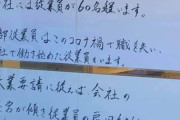 社には従業員が60名程います。
部従業員はこのコロナ禍で職を失い、
社で働き始めた従業員がいます。
業要請に従えば会社の
名が傾き従業員の